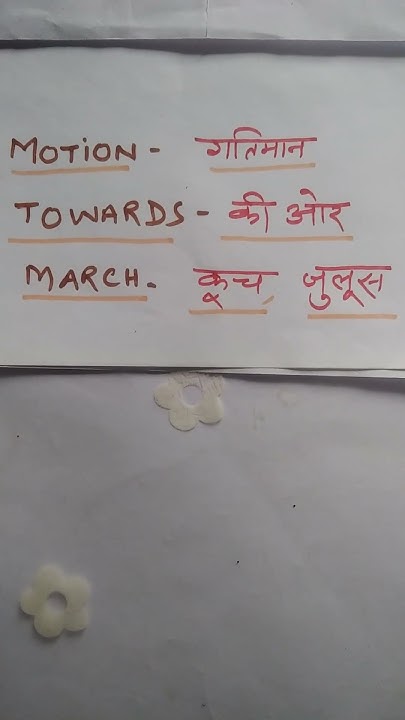 MOTiON - गतिमान
TOWARDS - की ओर
MARCH. कूच, जुलूस